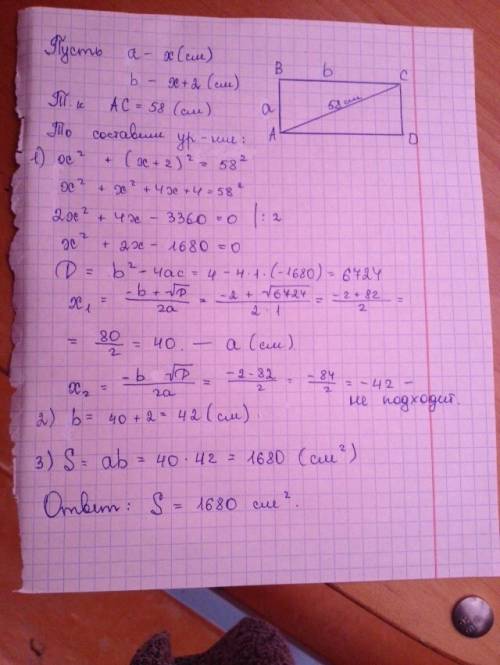 Пусть a – x (см)
b – x+2 (см)
Т.к AC = 58 (см)
То составим ур-ние:
B b C
a 58 см
A D
1) x² + (x+2)² = 58²
x² + x² + 4x + 4 = 58²
2x² + 4x – 3360 = 0 | : 2
x² + 2x – 1680 = 0
D = b² – 4ac = 4 – 4·1·(–1680) = 6724
x₁ = (–b + √D)/2a = (–2 + √6724)/(2·1) = (–2 + 82)/2 =
= 80/2 = 40. — a (см)
x₂ = (–b √D)/2a = (–2–82)/2 = –84/2 = –42 –
не подходит.
2) b = 40 + 2 = 42 (см).
3) S = ab = 40 · 42 = 1680 (см²)
Ответ: S = 1680 см².